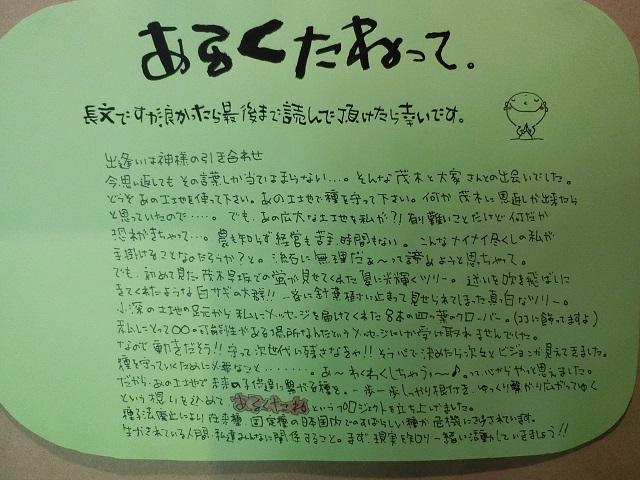 あるくたねって。
長文ですが良かったら最後まで読んで頂けたら幸いです。
出逢いは神様の引き合わせ
今思い返してもその言葉しか当てはまらない…。そんな茂木と大家さんとの出会いでした。
どうぞあの土地を使って下さい。あの土地で種を守って下さい。何か茂木に恩返しが出来たら
と思っていたので……。でも、あの広大な土地を私が？！有り難いことだけど何だか
恐れがきちゃって…。農も知らず経営も苦手、時間もない。こんなナイナイ尽くしの私が
手掛けることなのだろうか？と。流石に無理だぁ〜って諦めようと思ちゃって。
でも、初めて見た茂木早坂での蛍が見せてくれた夏に光輝くツリー。迷いを吹き飛ばしに
きてくれたような白サギの大群！！一斉に針葉樹に止まって見せられてしまった真っ白なツリー。
小深の土地の足元から私にメッセージを届けてくれた8本の四つ葉のクローバー。(ココに飾ってますよ)
私にとって○○の可能性がある場所なんだというメッセージにしか受け取れませんでした。
なので動きだそう！！守って次世代に残さなきゃ！！そう心で決めたら次々とビジョンが見えてきました。
種を守っていくために必要なこと………。あ〜わくわくしちゃう〜♪って心からやっと思えました。
だから、あの土地で未来の子供達に繋がる種を。一歩一歩しっかり根付き、ゆっくり繋がり広がってゆく
という想いを込めて あるくたね というプロジェクトを立ち上げました。
種子法廃止により在来種、固定種の日本国内でのすばらしい種が危機にさらされています。
生かされている人間・私達みんなに関係すること。まず、現実を知り一緒に活動していきましょう！！